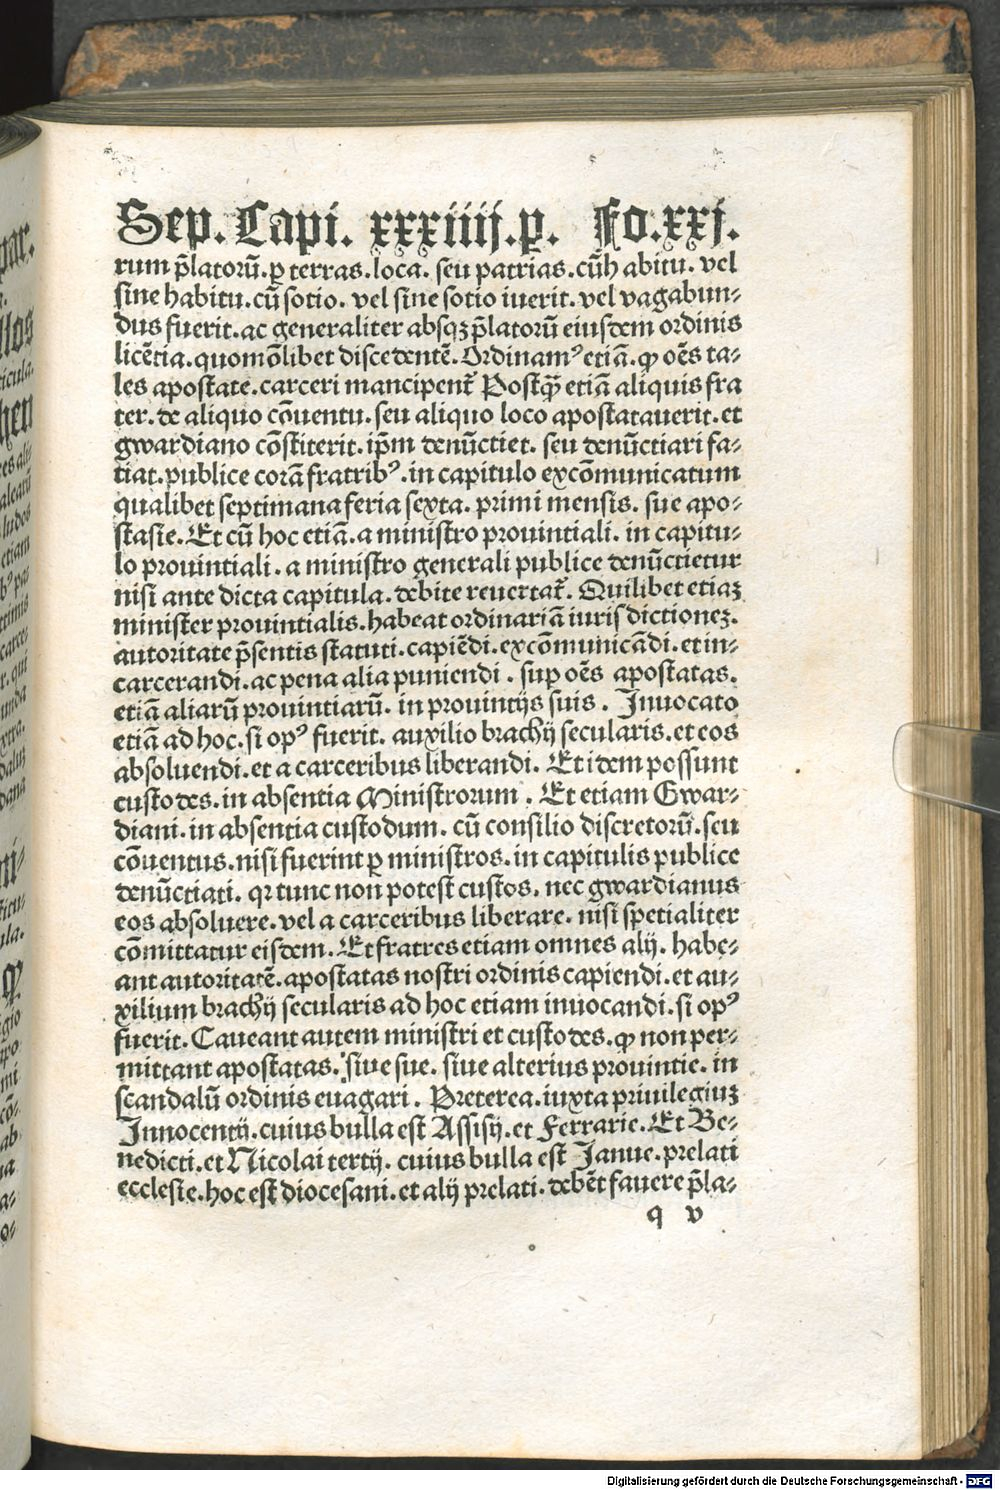 Sep. Capi. xxxiiij.p. Fo.xxj.
rum p̄latorū.ꝑ terras.loca. seu patrias.cūh abitu. vel
sine habitu.cū sotio. vel sine sotio iuerit.vel vagabun⸗
dus fuerit.ac generaliter absqꝫ p̄latorū eiusdem ordinis
licētia.quomōlibet discedentē.Ordinamꝰ etiā.ꝙ oēs ta⸗
les apostate.carceri mancipent᷑ Postq̄ꝫ etiā aliquis fra
ter.de aliquo cōuentu.seu aliquo loco apostatauerit.et
gwardiano cōstiterit.ip̄m denūctiet. seu denūctiari fa⸗
tiat.publice corā fratribꝰ.in capitulo excōmunicatum
qualibet septimana feria sexta. primi mensis. sue apo⸗
stasie.Et cū hoc etiā.a ministro prouintiali. in capitu⸗
lo prouintiali. a ministro generali publice denūctietur
nisi ante dicta capitula.debite reuertat᷑. Quilibet etiaꝫ
minister prouintialis.habeat ordinariā iurisdictioneꝫ.
autoritate p̄sentis statuti.capiēdi.excōmunicādi.et in⸗
carcerandi.ac pena alia puniendi. sup oēs apostatas.
etiā aliarū prouintiarū. in prouintijs suis. Inuocato
etiā ad hoc.si opꝰ fuerit. auxilio brachij secularis.et eos
absoluendi.et a carceribus liberandi. Et idem possunt
custodes.in absentia Ministrorum. Et etiam Gwar⸗
diani.in absentia custodum. cū consilio discretorū.seu
cōuentus.nisi fuerint ꝑ ministros.in capitulis publice
denūctiati. qꝛ tunc non potest custos. nec gwardianus
eos absoluere.vel a carceribus liberare. nisi spetialiter
cōmittatur eisdem.Et fratres etiam omnes alij. habe⸗
ant autoritatē.apostatas nostri ordinis capiendi.et au⸗
xilium brachij secularis ad hoc etiam inuocandi.si opꝰ
fuerit.Caueant autem ministri et custodes.ꝙ non per⸗
mittant apostatas.siue sue. siue alterius prouintie. in
scandalū ordinis euagari. Preterea.iuxta priuilegiuꝫ
Innocentij.cuius bulla est Assisij.et Ferrarie.Et Be⸗
nedicti.et Nicolai tertij. cuius bulla est Ianue.prelati
ecclesie.hoc est diocesani.et alij prelati.debēt fauere p̄la⸗
q v
Digitalisierung gefördert durch die Deutsche Forschungsgemeinschaft - DFG